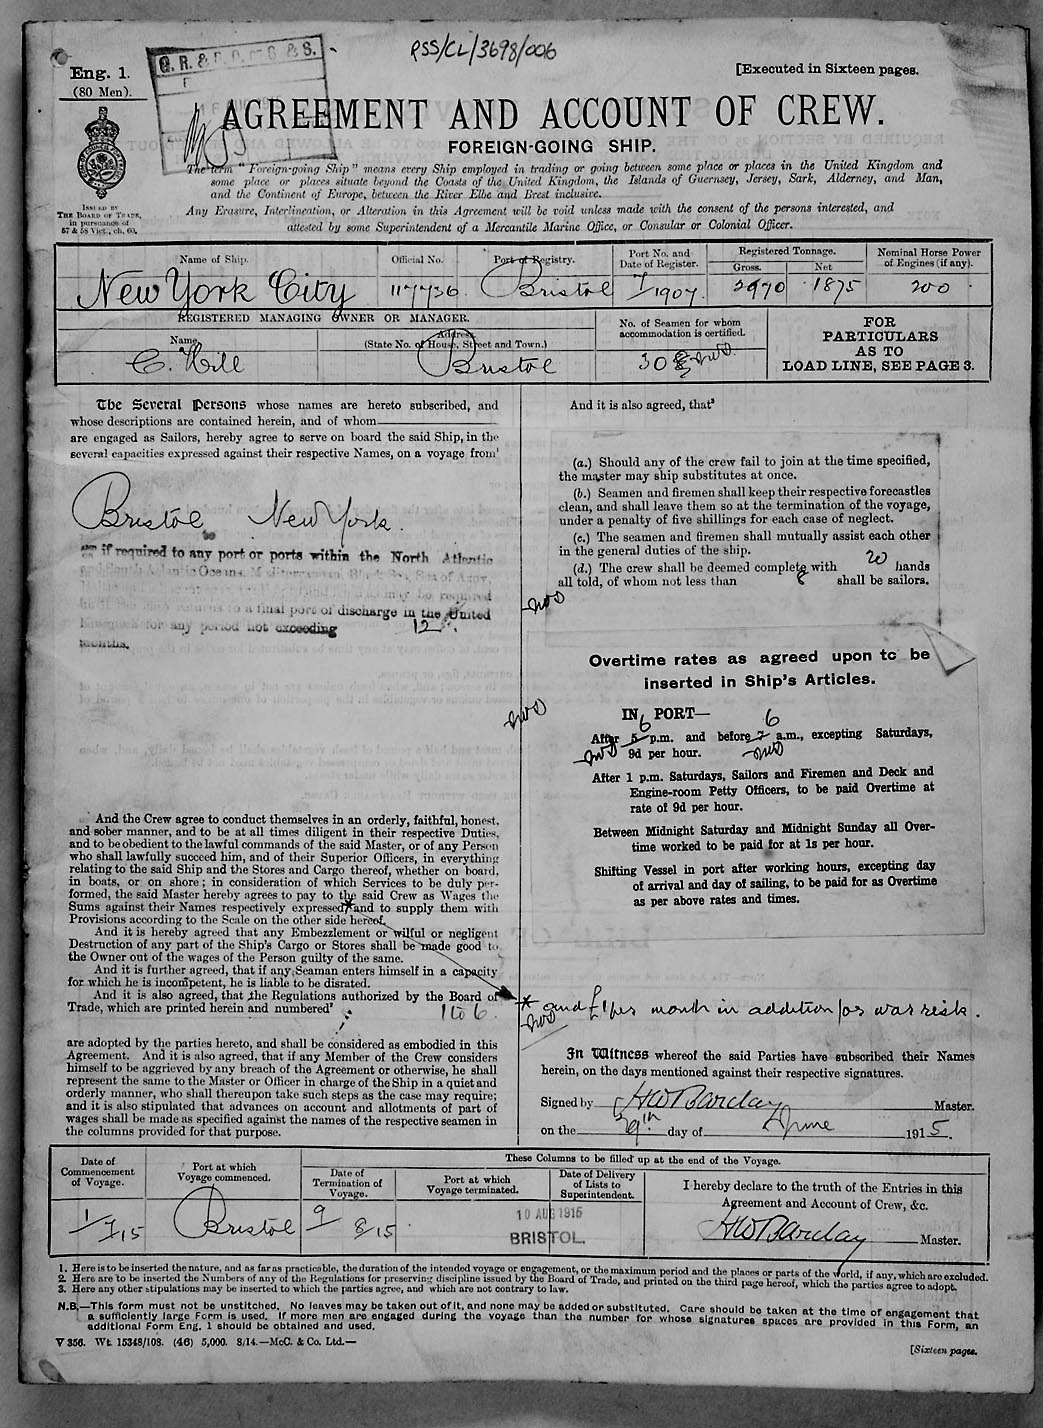 PSS/CL/3698/006
Eng. 1.
(80 Men).
G. R. & S.
[Executed in Sixteen pages.
AGREEMENT AND ACCOUNT OF CREW.
FOREIGN-GOING SHIP.
ISSUED BY
THE BOARD OF TRADE,
in pursuance of
57 & 58 Vict., ch. 60.
The term "Foreign-going Ship" means every Ship employed in trading or going between some place or places in the United Kingdom and
some place or places situate beyond the Coasts of the United Kingdom, the Islands of Guernsey, Jersey, Sark, Alderney, and Man,
and the Continent of Europe, between the River Elbe and Brest inclusive.
Any Erasure, Interlineation, or Alteration in this Agreement will be void unless made with the consent of the persons interested, and
attested by some Superintendent of a Mercantile Marine Office, or Consular or Colonial Officer.
Name of Ship.
Official No.
Port of Registry.
Port No. and
Date of Register.
Registered Tonnage.
Gross.
Net
Nominal Horse Power
of Engines (if any).
New York City
117736
Bristol
7/1907.
2970
1875
200
REGISTERED MANAGING OWNER OR MANAGER.
Name
Address
(State No. of House, Street and Town.)
No. of Seamen for whom
accommodation is certified.
FOR
PARTICULARS
AS TO
LOAD LINE, SEE PAGE 3.
C. Hill
Bristol
30
The Several Persons whose names are hereto subscribed, and
whose descriptions are contained herein, and of whom
are engaged as Sailors, hereby agree to serve on board the said Ship, in the
several capacities expressed against their respective Names, on a voyage from¹
Bristol to New York.
if required to any port or ports within the North Atlantic
and South Atlantic Oceans, Mediterranean, Black Sea, Sea of Azov,
may be required
to a final port of discharge in the United
Kingdom for any period not exceeding 12
months.
And the Crew agree to conduct themselves in an orderly, faithful, honest,
and sober manner, and to be at all times diligent in their respective Duties,
and to be obedient to the lawful commands of the said Master, or of any Person
who shall lawfully succeed him, and of their Superior Officers, in everything
relating to the said Ship and the Stores and Cargo thereof, whether on board,
in boats, or on shore; in consideration of which Services to be duly per-
formed, the said Master hereby agrees to pay to the said Crew as Wages the
Sums against their Names respectively expressed* and to supply them with
Provisions according to the Scale on the other side hereof.
And it is hereby agreed that any Embezzlement or wilful or negligent
Destruction of any part of the Ship's Cargo or Stores shall be made good to
the Owner out of the wages of the Person guilty of the same.
And it is further agreed, that if any Seaman enters himself in a capacity
for which he is incompetent, he is liable to be disrated.
And it is also agreed, that the Regulations authorized by the Board of
Trade, which are printed herein and numbered² 1 to 6.
are adopted by the parties hereto, and shall be considered as embodied in this
Agreement. And it is also agreed, that if any Member of the Crew considers
himself to be aggrieved by any breach of the Agreement or otherwise, he shall
represent the same to the Master or Officer in charge of the Ship in a quiet and
orderly manner, who shall thereupon take such steps as the case may require;
and it is also stipulated that advances on account and allotments of part of
wages shall be made as specified against the names of the respective seamen in
the columns provided for that purpose.
And it is also agreed, that³
(a.) Should any of the crew fail to join at the time specified,
the master may ship substitutes at once.
(b.) Seamen and firemen shall keep their respective forecastles
clean, and shall leave them so at the termination of the voyage,
under a penalty of five shillings for each case of neglect.
(c.) The seamen and firemen shall mutually assist each other
in the general duties of the ship.
(d.) The crew shall be deemed complete with 20 hands
all told, of whom not less than 8 shall be sailors.
Overtime rates as agreed upon to be
inserted in Ship's Articles.
IN PORT—
6 6
After 5 p.m. and before 7 a.m., excepting Saturdays,
9d per hour.
After 1 p.m. Saturdays, Sailors and Firemen and Deck and
Engine-room Petty Officers, to be paid Overtime at
rate of 9d per hour.
Between Midnight Saturday and Midnight Sunday all Over-
time worked to be paid for at 1s per hour.
Shifting Vessel in port after working hours, excepting day
of arrival and day of sailing, to be paid for as Overtime
as per above rates and times.
* and £1 per month in addition for war risk.
In Witness whereof the said Parties have subscribed their Names
herein, on the days mentioned against their respective signatures.
Signed by HW Barclay Master.
on the 29th day of June 1915.
Date of
Commencement
of Voyage.
Port at which
Voyage commenced.
These Columns to be filled up at the end of the Voyage.
Date of
Termination of
Voyage.
Port at which
Voyage terminated.
Date of Delivery
of Lists to
Superintendent.
I hereby declare to the truth of the Entries in this
Agreement and Account of Crew, &c.
1/7/15
Bristol
9/8/15
10 AUG 1915
BRISTOL.
HW Barclay Master.
1. Here is to be inserted the nature, and as far as practicable, the duration of the intended voyage or engagement, or the maximum period and the places or parts of the world, if any, which are excluded.
2. Here are to be inserted the Numbers of any of the Regulations for preserving discipline issued by the Board of Trade, and printed on the third page hereof, which the parties agree to adopt.
3. Here any other stipulations may be inserted to which the parties agree, and which are not contrary to law.
N.B.—This form must not be unstitched. No leaves may be taken out of it, and none may be added or substituted. Care should be taken at the time of engagement that
a sufficiently large Form is used. If more men are engaged during the voyage than the number for whose signatures spaces are provided in this Form, an
additional Form Eng. 1 should be obtained and used.
V 356. Wt. 15348/108. (46) 5,000. 8/14.—McC. & Co. Ltd.—
[Sixteen pages.